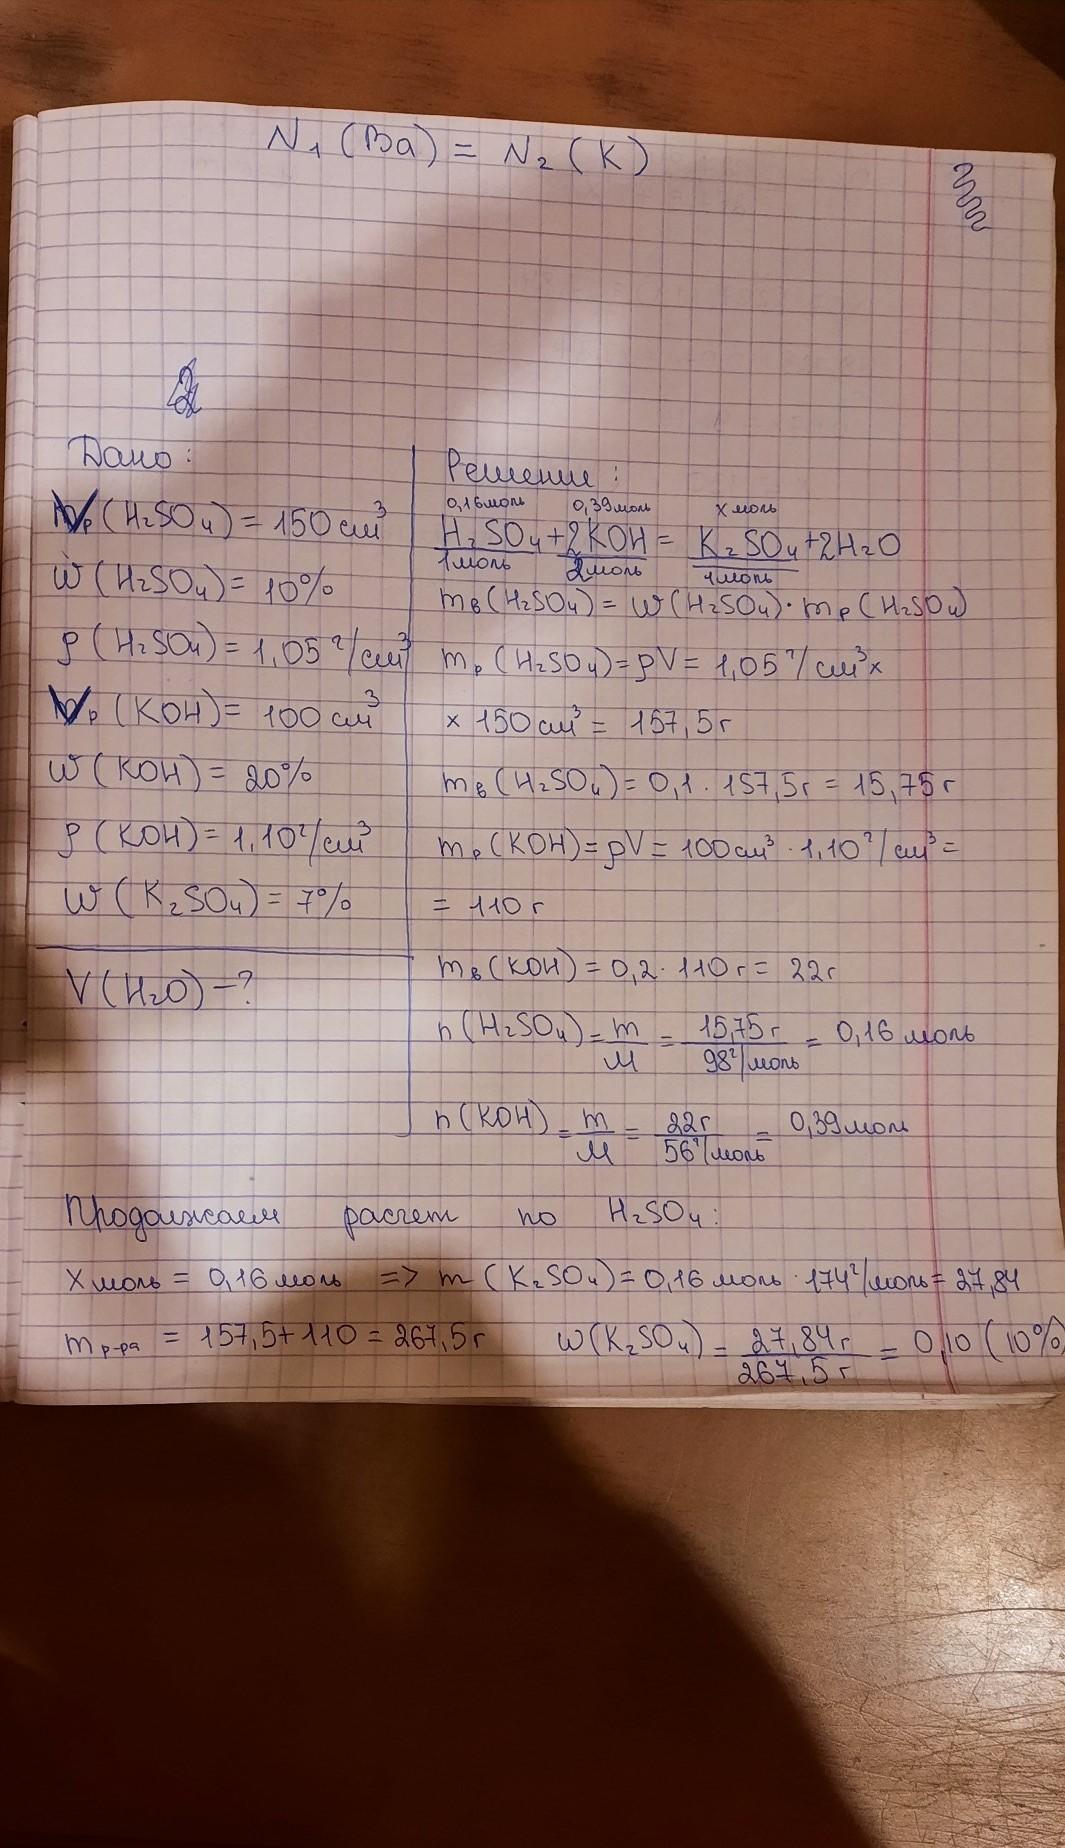 N₁(Ba) = N₂(K)
Дано:
Vр(H₂SO₄) = 150 см³
W(H₂SO₄) = 10%
ρ(H₂SO₄) = 1,05 г/см³
Vр(KOH) = 100 см³
W(KOH) = 20%
ρ(KOH) = 1,10 г/см³
W(K₂SO₄) = 7%
V(H₂O) - ?
Решение:
0,16 моль 0,39 моль x моль
H₂SO₄ + 2KOH = K₂SO₄ + 2H₂O
1 моль 2 моль 1 моль
mв(H₂SO₄) = W(H₂SO₄) · mр(H₂SO₄)
mр(H₂SO₄) = ρV = 1,05 г/см³ x
x 150 см³ = 157,5 г
mв(H₂SO₄) = 0,1 · 157,5 г = 15,75 г
mр(KOH) = ρV = 100 см³ · 1,10 г/см³ =
= 110 г
mв(KOH) = 0,2 · 110 г = 22 г
n(H₂SO₄) = m/M = 15,75 г / 98 г/моль = 0,16 моль
n(KOH) = m/M = 22 г / 56 г/моль = 0,39 моль
Продолжаем расчет по H₂SO₄:
x моль = 0,16 моль => m(K₂SO₄) = 0,16 моль · 174 г/моль = 27,84
mр-ра = 157,5 + 110 = 267,5 г W(K₂SO₄) = 27,84 г / 267,5 г = 0,10 (10%)